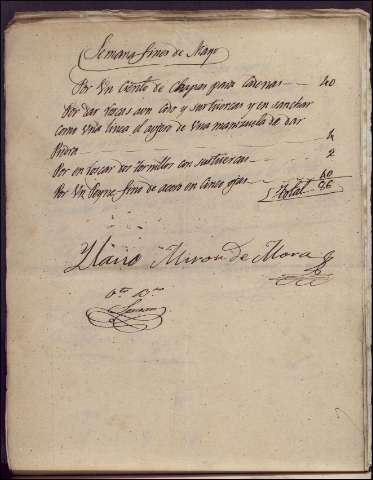 Semana fines de Mayo
Por Un Ciento de Chapas para Cadenas 40
Por dar roscas a un Cavo y sus tuercas y en sanchar
Como una linea el de una manizuela de dar
Piedra 4
Por en roscar dos tornillos con sus tuercas 2
Por Un fino de acero en Cinco ojas 40
Total 86
Ylario Miron de Mora